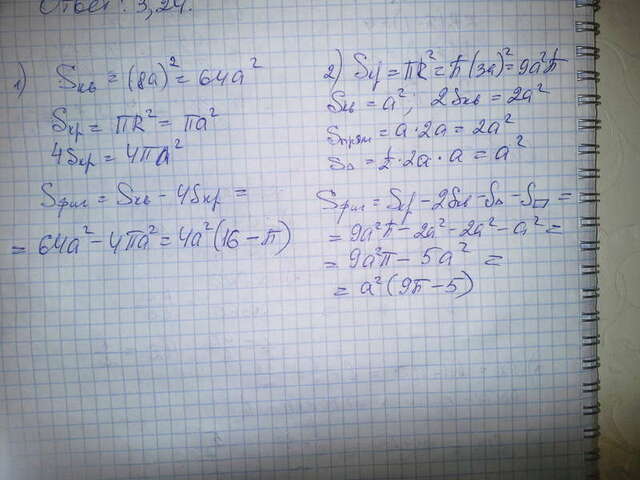 Ответ: 3,24.
1) Sкв = (8a)² = 64a²
Sкр = πR² = πa²
4Sкр = 4πa²
Sфиг = Sкв - 4Sкр =
= 64a² - 4πa² = 4a²(16 - π)
2) Sкр = πR² = π(3a)² = 9a²π
Sкв = a²; 2Sкв = 2a²
Sпрям = a · 2a = 2a²
S△ = ½ · 2a · a = a²
Sфиг = Sкр - 2Sкв - S△ - S▭ =
= 9a²π - 2a² - 2a² - a² =
= 9a²π - 5a² =
= a²(9π - 5)